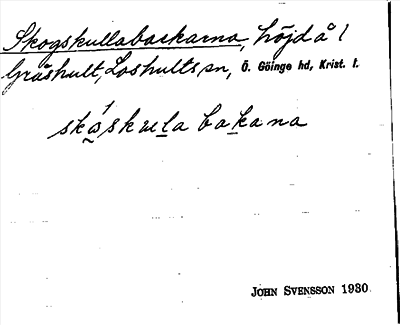 Skogskullabackarna, höjd å 1
Gråshult, Loshults sn, Ö. Göinge hd, Krist. l.
skɔ́skula bakana
JOHN SVENSSON 1930